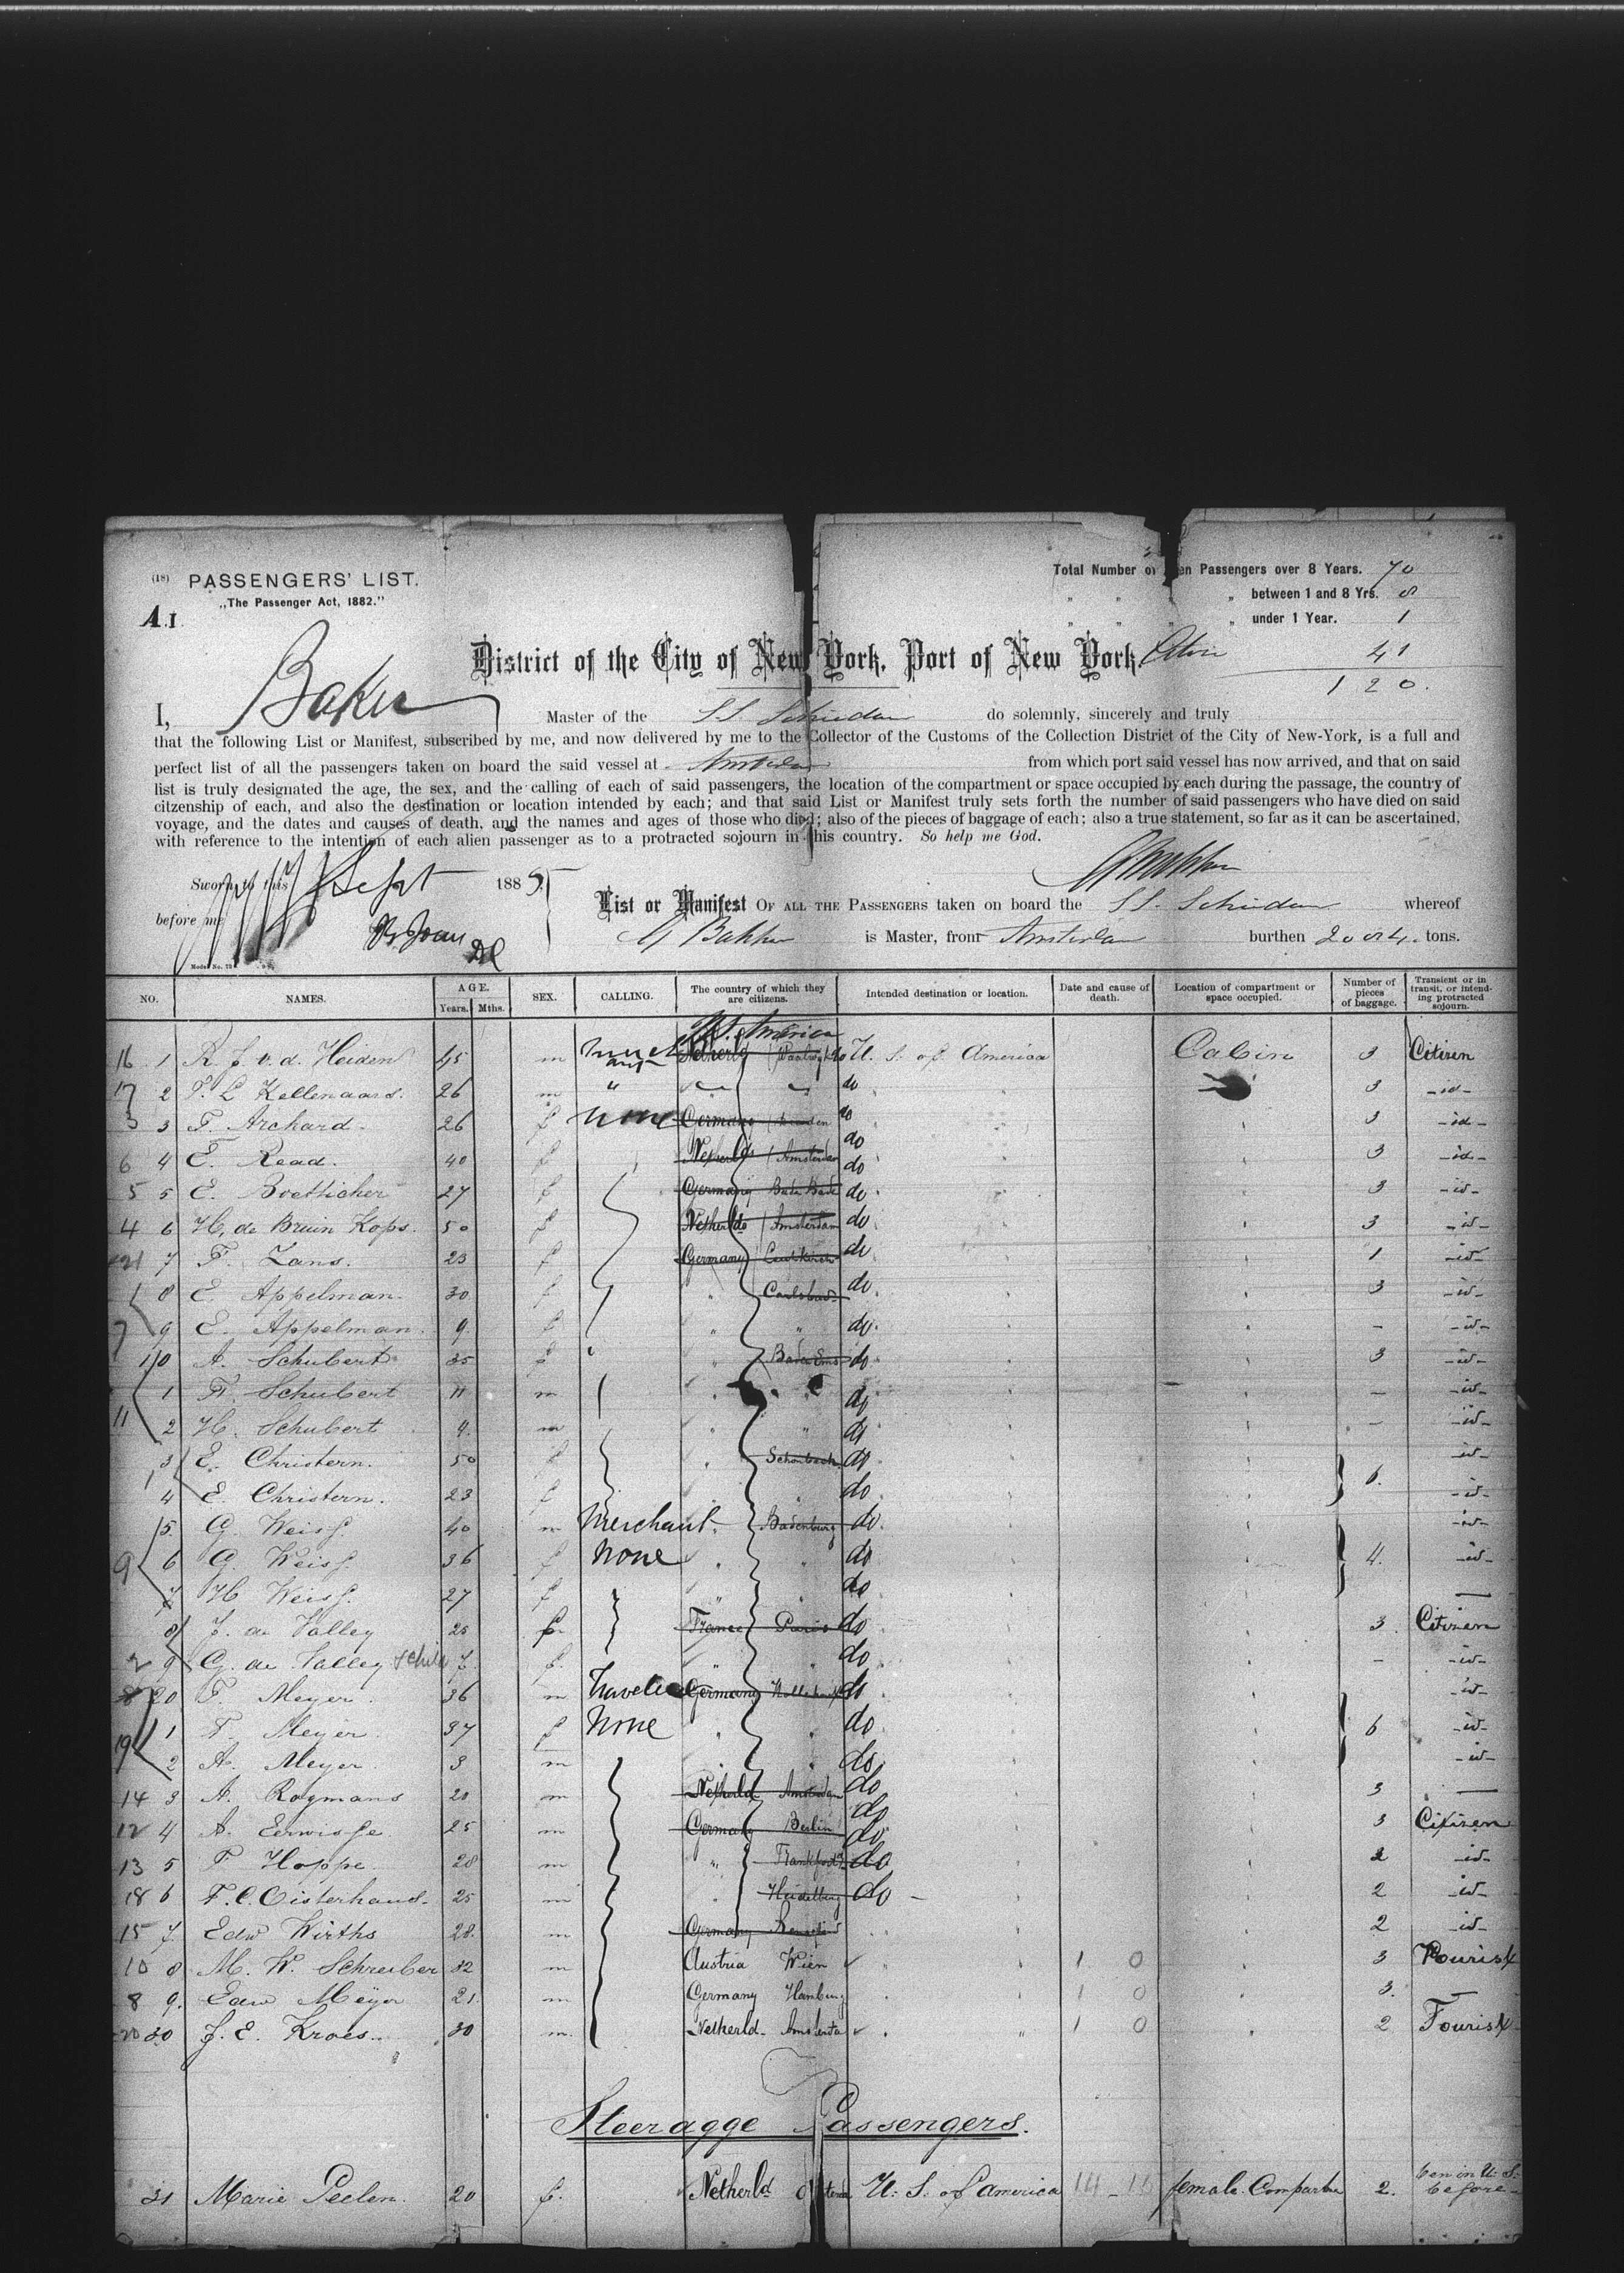 (18) PASSENGERS' LIST.
„The Passenger Act, 1882."
A.1
Total Number of en Passengers over 8 Years. 70
„ „ „ „ between 1 and 8 Yrs. 8
„ „ „ „ under 1 Year. 1
41
120.
District of the City of New York, Port of New York
I, Baker Master of the S.S. Schiedam do solemnly, sincerely and truly
that the following List or Manifest, subscribed by me, and now delivered by me to the Collector of the Customs of the Collection District of the City of New-York, is a full and
perfect list of all the passengers taken on board the said vessel at Amsterdam from which port said vessel has now arrived, and that on said
list is truly designated the age, the sex, and the calling of each of said passengers, the location of the compartment or space occupied by each during the passage, the country of
citzenship of each, and also the destination or location intended by each; and that said List or Manifest truly sets forth the number of said passengers who have died on said
voyage, and the dates and causes of death, and the names and ages of those who died; also of the pieces of baggage of each; also a true statement, so far as it can be ascertained,
with reference to the intention of each alien passenger as to a protracted sojourn in this country. So help me God.
Sworn to this Sept 1885
before me
List or Manifest OF ALL THE PASSENGERS taken on board the S.S. Schiedam whereof
G Bakker is Master, from Amsterdam burthen tons.
NO. NAMES. AGE. Years. Mths. SEX. CALLING. The country of which they are citizens. Intended destination or location. Date and cause of death. Location of compartment or space occupied. Number of pieces of baggage. Transient or in transit, or intending protracted sojourn.
U.S. America
16 1 R. J. v. d. Heiden 45 m Netherld U. S. of America Cabin 3 Citizen
17 2 P. L Kellenaars. 26 m " do 3 -id-
3 3 F. Archard. 26 f none Germany do 3 -id-
6 4 E. Read. 40 f Netherlds Amsterdam do 3 -id-
5 5 E. Boetticher 27 f Germany do 3 -id-
4 6 H. de Bruin Kops. 50 f Netherlds Amsterdam do 3 -id-
21 7 F. Zans. 23 f Germany do 1 -id-
8 E. Appelman. 30 f " Carlsbad do. 3 -id-
7 9 E. Appelman. 9 f " " do. - -id-
10 A. Schubert 35 f " do 3 -id-
1 F. Schubert 11 m " " do - -id-
11 2 H. Schubert 9. m " " do - -id-
3 E. Christern. 50 f " Schönbach do -id-
1 4 E. Christern. 23 f " do 6. -id-
5 G. Weiss. 40 m Merchant. do. -id-
9 6 G. Weiss. 36 f None " " do 4. -id-
7 H Weiss. 27 f " " do —
8 J. de Valley 28 f. France Paris do 3 Citizen
2 9 G. de Valley 7 f. " " do - -id-
20 F. Meyer. 36 m Germany do -id-
1 F. Meyer. 37 f None " " do 6 -id-
19 2 A. Meyer. 3 m " " do -id-
14 3 A. Rogmans 20 m Netherld Amsterdam do 3 —
12 4 A. 25 m Germany Berlin do 3 Citizen
13 5 P Hoppe 28 m " do 2 -id-
18 6 F. C. Oisterhaus. 25 m " Heidelberg do 2 -id-
15 7. Edw Wirths 28. m Germany 2 -id-
10 8 M. W. Schreiber 32 m Austria Wien 1 0 3 Tourist
8 9. Edw Meyer 21. m Germany Hamburg 1 0 3. —
20 30 J. E. Kroes. 30 m. Netherld. Amsterda " 1 0 2 Tourist
Steeragge Passengers.
31 Marie Peelen. 20 f. Netherld U. S. of America female Compartm 2. been in U. S. before